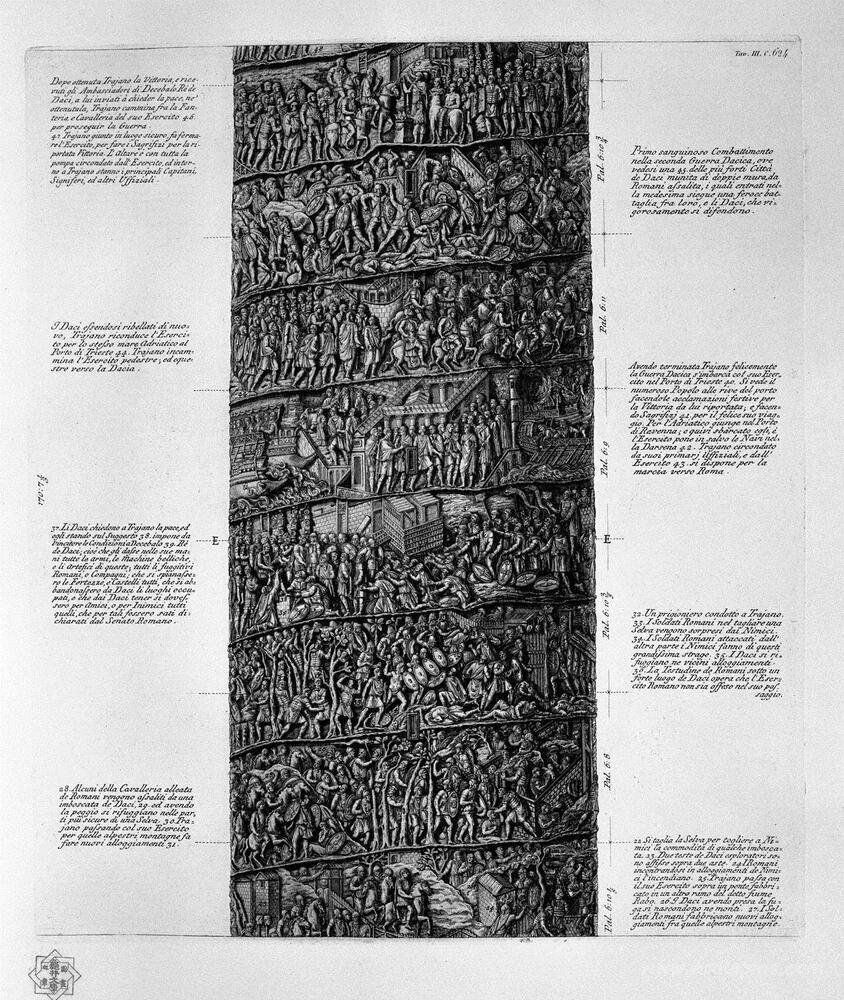 Tav. III. C. 624
Dopo ottenuta Trajano la Vittoria, e rice-
vuti gli Ambasciadori di Decebalo Rè de
Daci, a lui inviati à chieder la pace, ne'
ottenutala, Trajano cammina fra la Fan-
teria e Cavalleria del suo Esercito 46.
per proseguir la Guerra.
47. Trajano giunto in luogo sicuro, fa ferma-
re l'Esercito, per fare i Sagrifizj per la ri-
portata Vittoria. L'Altare è con tutta la
pompa circondato dall'Esercito, ed intor-
no a Trajano stanno i principali Capitani,
Signiferi, ed altri Uffiziali.
Primo sanguinoso Combattimento
nella seconda Guerra Dacica, ove
vedesi una 45. delle più forti Città
de Daci munita di doppie mura, da
Romani assalita, i quali entrati nel-
la medesima siegue una feroce bat-
taglia fra loro, e li Daci, che vi-
gorosamente si difendono.
Pal. 6:10 3/4
I Daci essendosi ribellati di nuo-
vo, Trajano riconduce l'Eserci-
to per lo stesso mare Adriatico al
Porto di Trieste 44. Trajano incam-
mina l'Esercito pedestre, ed eque-
stre verso la Dacia.
Pal. 6:11
Avendo terminata Trajano felicemente
la Guerra Dacica s'imbarca col suo Eser-
cito nel Porto di Trieste 40. Si vede il
numeroso Popolo alle rive del porto
facendole acclamazioni festive per
la Vittoria da lui riportata, e facen-
do Sagrifizj 41. per il felice suo viag-
gio. Per l'Adriatico giunge nel Porto
di Ravenna, e quivi sbarcato egli, è
l'Esercito pone in salvo le Navi nel-
la Darsena 42. Trajano circondato
da suoi primarj Uffiziali, e dall'
Esercito 43. si dispone per la
marcia verso Roma.
Pal. 6:9
37. Li Daci chiedono a Trajano la pace, ed
egli stando sul Suggesto 38. impone da
Vincitore le Condizioni a Decebalo 39. Rè
de Daci; cioè che gli dasse nelle sue ma-
ni tutte le armi, le Machine belliche,
e li artefici di queste; tutti li fuggitivi
Romani, e Compagni; che si spianasse-
ro le Fortezze, e Castelli tutti, che si ab-
bandonassero da Daci li luoghi occu-
pati, e che dai Daci tener si doves-
sero per Amici, o per Inimici tutti
quelli, che per tali fossero sati di-
chiarati dal Senato Romano.
E
E
Pal. 6:10 3/4
32. Un prigioniero condotto a Trajano.
33. I Soldati Romani nel tagliare una
Selva vengono sorpresi dai Nimici.
34. I Soldati Romani attaccati dall'
altra parte i Nimici fanno di questi
grandissima strage. 35. I Daci si ri-
fuggiano ne vicini alloggiamenti.
36. La Testudine de Romani sotto un
forte luogo de Daci opera che l'Eser-
cito Romano non sia offeso nel suo pas-
saggio.
Pal. 6:8
28. Alcuni della Cavalleria alleata
de Romani vengono assaliti da una
imboscata de Daci, 29. ed avendo
la peggio si rifuggiano nelle par-
ti più sicure di una Selva. 30. Tra-
jano passando col suo Esercito
per quelle alpestri montagne fa
fare nuovi alloggiamenti 31.
22. Si taglia la Selva per togliere a Ni-
mici la commodità di qualche imbosca-
ta. 23. Due teste de Daci esploratori so-
no affisse sopra due aste. 24. I Romani
incontrandosi in alloggiamenti de Nimi-
ci l'incendiano. 25. Trajano passa con
il suo Esercito sopra un ponte fabbri-
cato in un altro ramo del detto fiume
Rabo. 26. I Daci avendo presa la fu-
ga si nascondono ne monti. 27. I Sol-
dati Romani fabbricano nuovi allog-
giamenti fra quelle alpestri montagne.